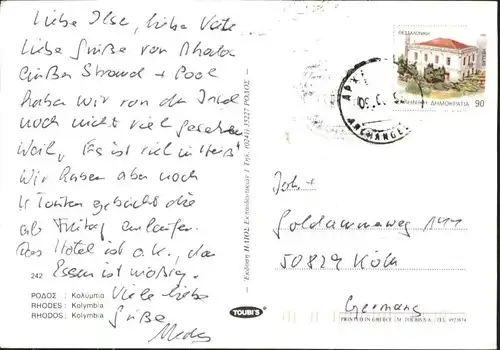 Liebe Ilse, liebe
liebe Grüße von Rhodos
außer Strand + Pool
haben wir von der Insel
noch nicht viel gesehen
weil, "Es ist viel zu heiß"
Wir haben aber noch
4 Touren gebucht die
ab Freitag anlaufen.
Das Hotel ist o.k., das
Essen ist mäßig.
Viele liebe
Grüße
242
ΡΟΔΟΣ : Κολύμπια
RHODES : Kolymbia
RHODOS : Kolymbia
Έκδοση ΗΛΙΟΣ Τηλ. (0241) 35227 ΡΟΔΟΣ
TOUBI'S
ΘΕΣΣΑΛΟΝΙΚΗ
ΕΛΛΗΝΙΚΗ ΔΗΜΟΚΡΑΤΙΑ 90
50829 Köln
Germany
PRINTED IN GREECE M. TOUBIS S.A., TEL. 9923874